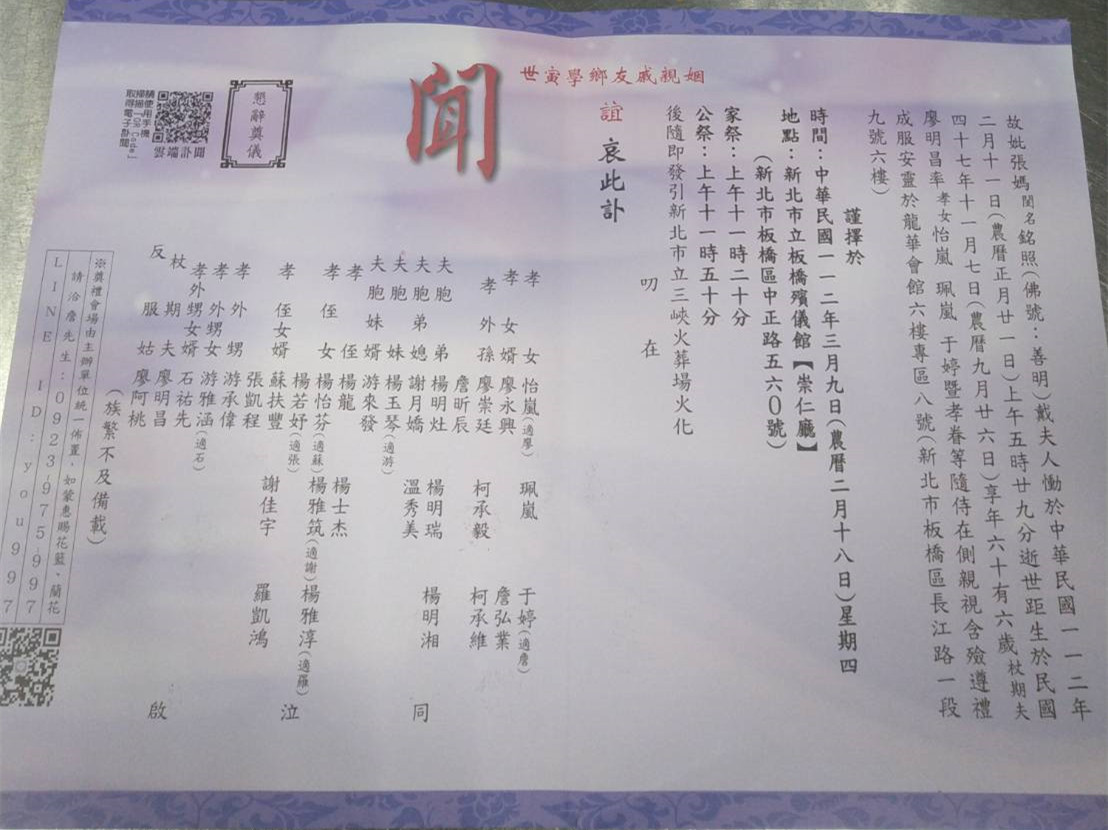 故妣張媽閨名銘照(佛號:善明)戴夫人慟於中華民國一一二年
二月十一日(農曆正月廿一日)上午五時廿九分逝世距生於民國
四十七年十一月七日(農曆九月廿六日)享年六十有六歲杖期夫
廖明昌率孝女怡嵐 珮嵐 于婷暨孝眷等隨侍在側親視含殮遵禮
成服安靈於龍華會館六樓專區八號(新北市板橋區長江路一段
九號六樓)
謹擇於
時間:中華民國一一二年三月九日(農曆二月十八日)星期四
地點:新北市立板橋殯儀館【崇仁廳】
(新北市板橋區中正路五六0號)
家祭:上午十一時二十分
公祭:上午十一時五十分
後隨即發引新北市立三峽火葬場火化
叨在
姻親戚友鄉學寅世
誼 哀此訃
聞
懇辭奠儀
雲端訃聞
請使用手機
掃描「QR Code」
取得電子訃聞
孝女 怡嵐(適廖) 珮嵐 于婷(適詹)
孝女婿 廖永興 詹弘業
孝外孫 廖崇廷 柯承毅 柯承維
詹昕辰
夫胞弟 楊明灶 楊明瑞 楊明湘
夫胞弟媳 謝月嬌 溫秀美
夫胞妹 楊玉琴(適游)
夫胞妹婿 游來發
孝侄 楊龍 楊士杰
孝侄女 楊怡芬(適蘇) 楊雅筑(適謝) 楊雅淳(適羅)
楊若妤(適張)
孝侄女婿 蘇扶豐 謝佳宇 羅凱鴻
張凱程
孝外甥 游承偉
孝外甥女 游雅涵(適石)
孝外甥女婿 石祐先
杖期夫 廖明昌
反服姑 廖阿桃
同泣啟
(族繁不及備載)
※奠禮會場由主辦單位統一佈置、如蒙惠賜花籃、蘭花
請洽詹先生:0923-975-997
LINE ID:you997